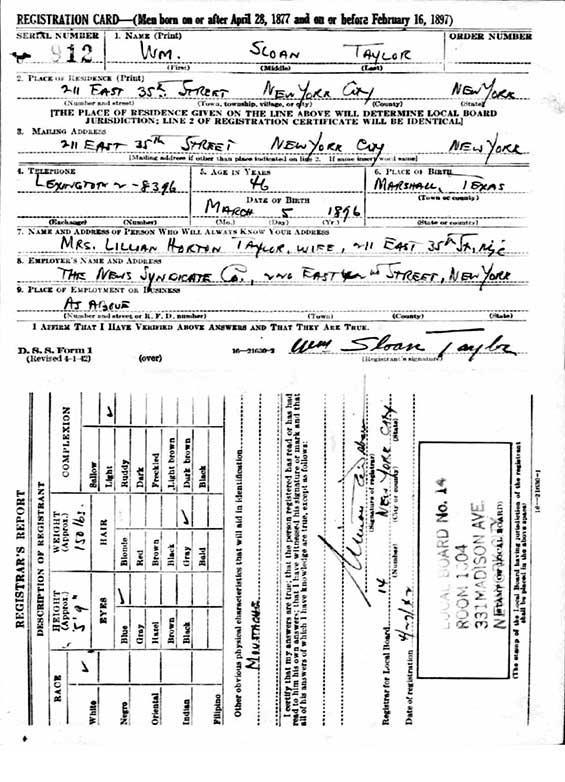 REGISTRATION CARD—(Men born on or after April 28, 1877 and on or before February 16, 1897)
SERIAL NUMBER 1. NAME (Print) ORDER NUMBER
912 WM. SLOAN TAYLOR
(First) (Middle) (Last)
2. PLACE OF RESIDENCE (Print)
211 EAST 35th STREET NEW YORK CITY NEW YORK
(Number and street) (Town, township, village, or city) (County) (State)
[THE PLACE OF RESIDENCE GIVEN ON THE LINE ABOVE WILL DETERMINE LOCAL BOARD
JURISDICTION; LINE 2 OF REGISTRATION CERTIFICATE WILL BE IDENTICAL]
3. MAILING ADDRESS
211 EAST 35th STREET NEW YORK CITY NEW YORK
[Mailing address if other than place indicated on line 2. If same insert word same]
4. TELEPHONE 5. AGE IN YEARS 6. PLACE OF BIRTH
LEXINGTON 2-8396 46 MARSHALL, TEXAS
DATE OF BIRTH (Town or county)
MARCH 5 1896
(Exchange) (Number) (Mo.) (Day) (Yr.) (State or country)
7. NAME AND ADDRESS OF PERSON WHO WILL ALWAYS KNOW YOUR ADDRESS
MRS. LILLIAN HORTON TAYLOR, WIFE, 211 EAST 35th ST, NYC
8. EMPLOYER'S NAME AND ADDRESS
THE NEWS SYNDICATE CO., 220 EAST STREET, NEW YORK
9. PLACE OF EMPLOYMENT OR BUSINESS
AS ABOVE
(Number and street or R. F. D. number) (Town) (County) (State)
I AFFIRM THAT I HAVE VERIFIED ABOVE ANSWERS AND THAT THEY ARE TRUE.
D. S. S. Form 1
(Revised 4-1-42) (over) 16—21630-2 Wm Sloan Taylor
(Registrant's signature)
REGISTRAR'S REPORT
DESCRIPTION OF REGISTRANT
RACE HEIGHT (Approx.) WEIGHT (Approx.) COMPLEXION
5' 9" 150 lbs.
EYES HAIR
White Blue Blonde Sallow
Light
Negro Gray Red Ruddy
Dark
Oriental Hazel Brown Freckled
Brown Black Light brown
Indian Black Gray Dark brown
Filipino Bald Black
Other obvious physical characteristics that will aid in identification
MOUSTACHE
I certify that my answers are true; that the person registered has read or has had
read to him his own answers; that I have witnessed his signature or mark and that
all of his answers of which I have knowledge are true, except as follows:
(Signature of registrar)
Registrar for Local Board 14 NEW YORK CITY
(Number) (City or county) (State)
Date of registration
LOCAL BOARD No. 14
ROOM 1304
331 MADISON AVE.
(STAMP OF LOCAL BOARD)
(The stamp of the Local Board having jurisdiction of the registrant
shall be placed in the above space)
16—21630-1